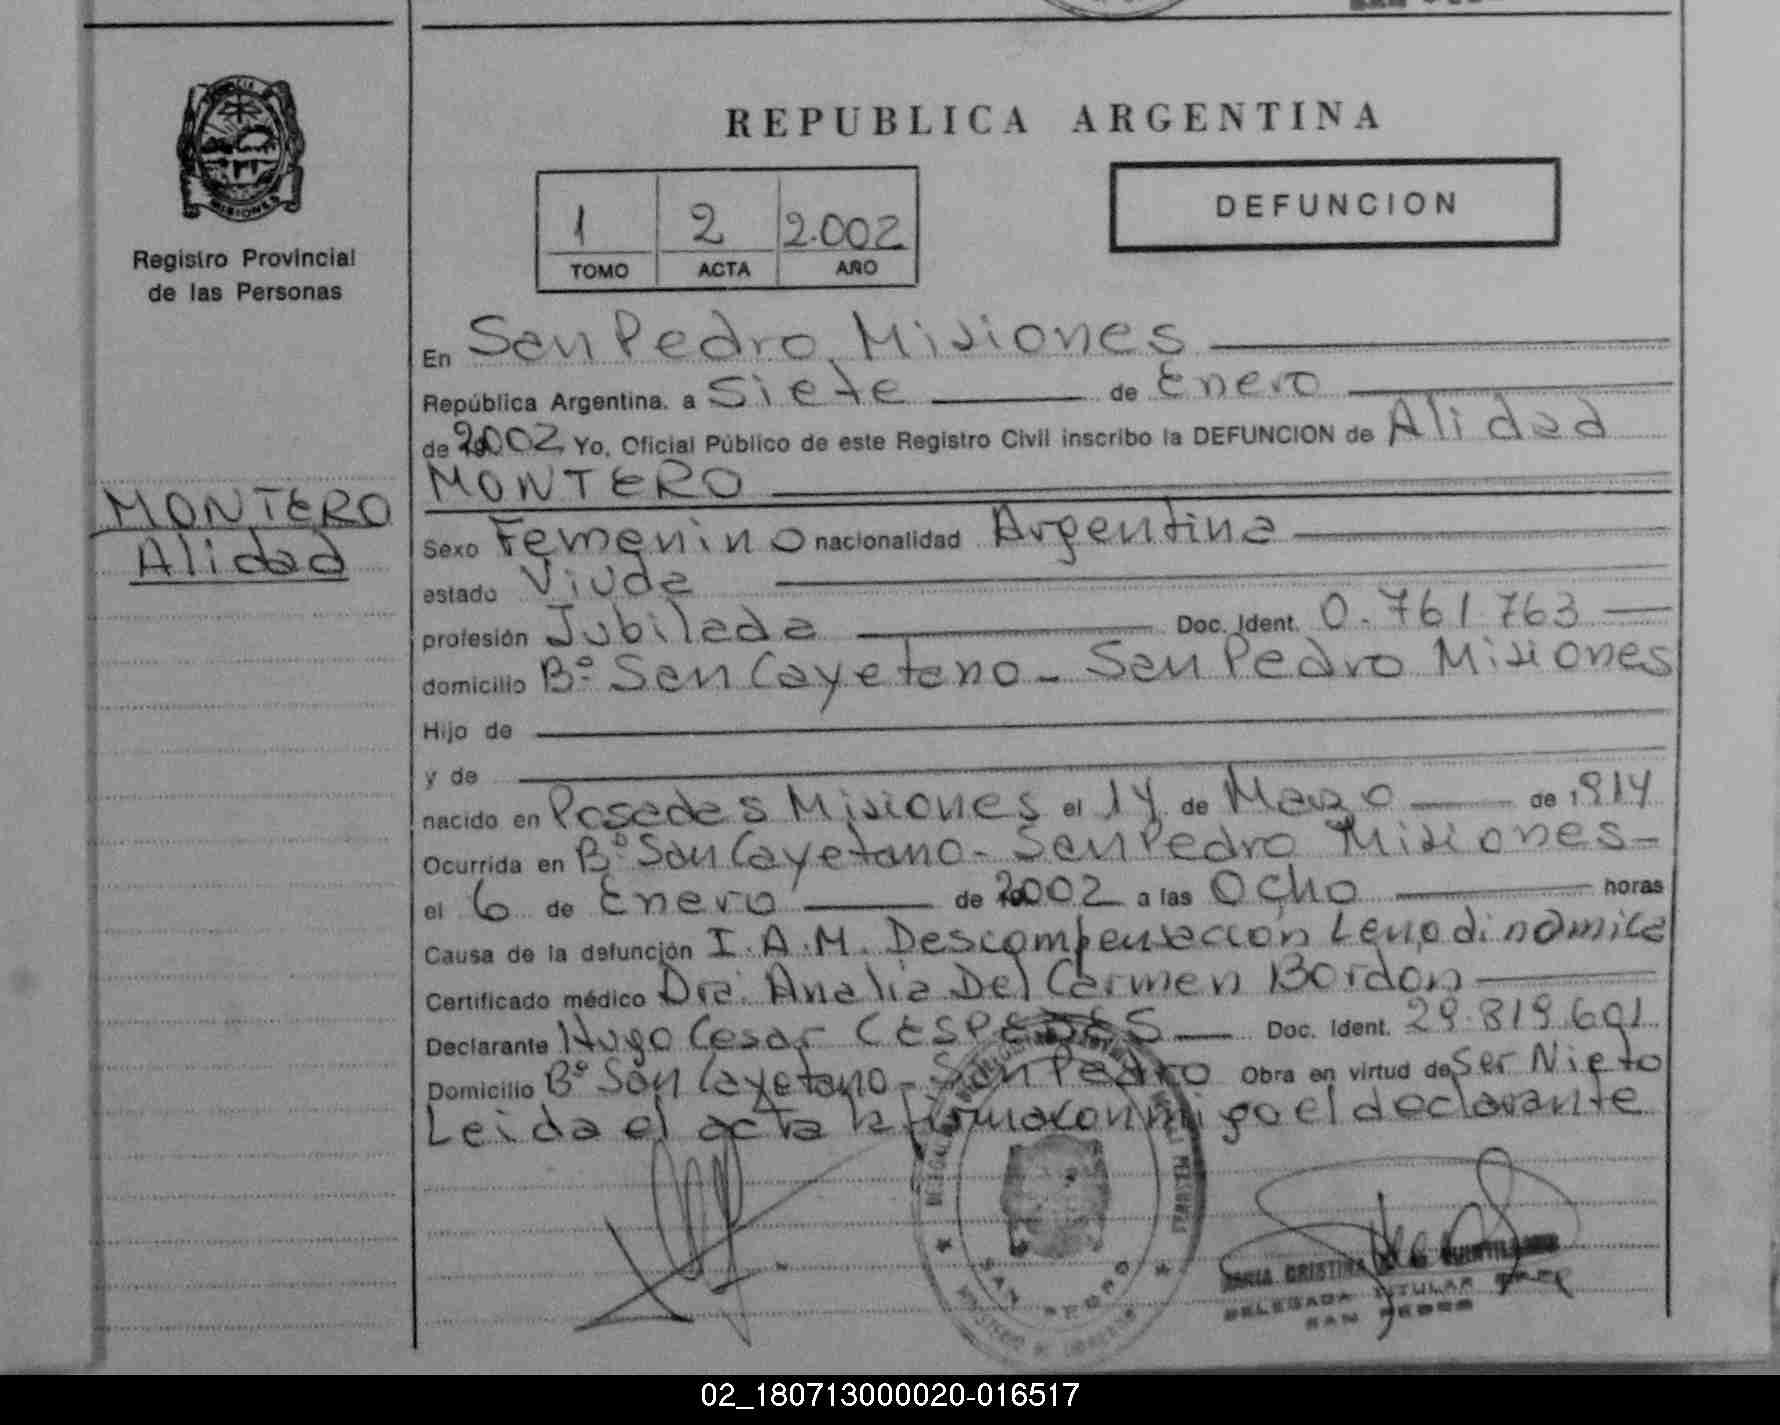 REPUBLICA ARGENTINA
MISIONES
Registro Provincial
de las Personas
1 2 2.002
TOMO ACTA AÑO
DEFUNCION
MONTERO
Alidad
En San Pedro, Misiones
República Argentina. a Siete de Enero
de 2002 Yo, Oficial Público de este Registro Civil inscribo la DEFUNCION de Alidad
MONTERO
Sexo Femenino nacionalidad Argentina
estado Viuda
profesión Jubilada Doc. Ident. 0.761.763
domicilio Bº San Cayetano - San Pedro Misiones
Hijo de
y de
nacido en Posadas Misiones el 14 de Marzo de 1914
Ocurrida en Bº San Cayetano - San Pedro Misiones -
el 6 de Enero de 2002 a las Ocho horas
Causa de la defunción I.A.M. Descompensación
Certificado médico Dra. Analia Del Carmen Bordon
Declarante Hugo Cesar CESPEDES Doc. Ident. 29.819.601
Domicilio Bº San Cayetano - San Pedro Obra en virtud de Ser Nieto
Leida el acta la firma conmigo el declarante
SAN PEDRO
MARIA CRISTINA
DELEGADA TITULAR
SAN PEDRO
02_180713000020-016517